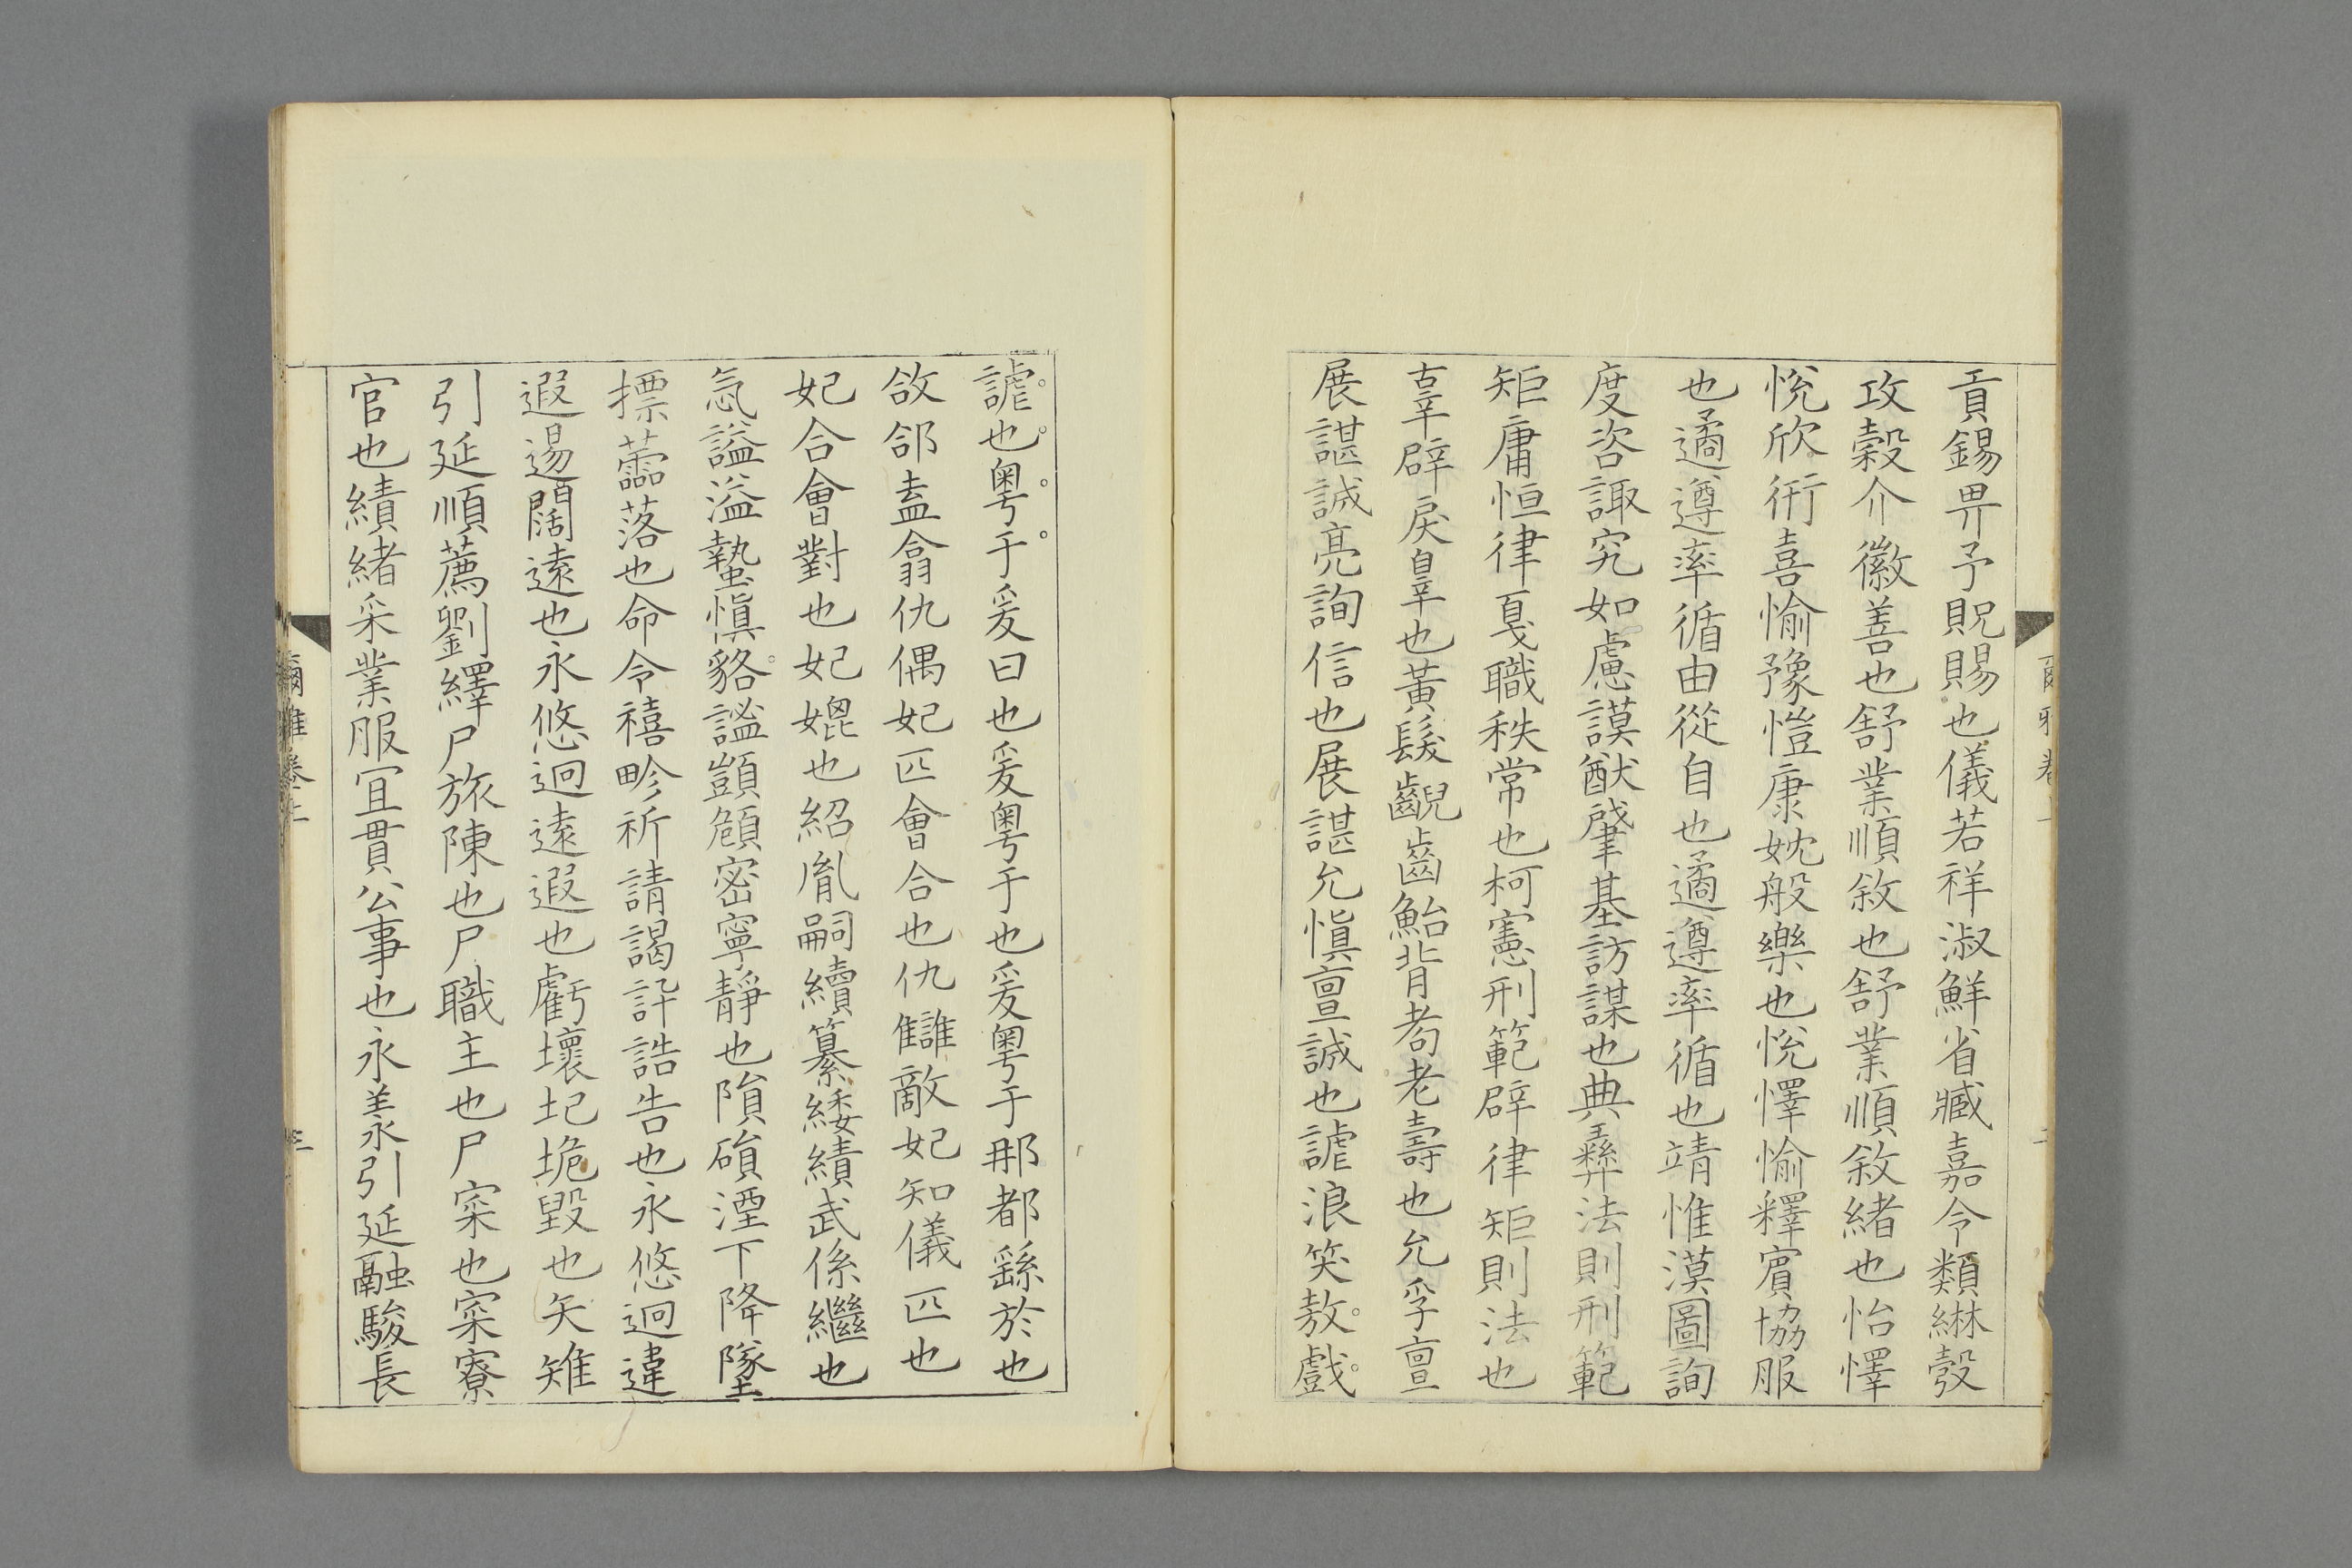 貢錫畀予貺賜也儀若祥淑鮮省臧嘉令類綝彀
攻穀介徽善也舒業順敘也舒業順敘緒也怡懌
悅欣衎喜愉豫愷康妉般樂也悅懌愉釋賓協服
也遹遵率循由從自也遹遵率循也靖惟漠圖詢
度咨諏究如慮謨猷肇基訪謀也典彝法則刑範
矩庸恒律戛職秩常也柯憲刑範辟律矩則法也
辜辟戾辠也黃髮齯齒鮐背耇老壽也允孚亶
展諶誠亮詢信也展諶允慎亶誠也謔浪笑敖戲
謔也粵于爰曰也爰粵于也爰粵于那都繇於也
敆郃盍翕仇偶妃匹會合也仇讎敵妃知儀匹也
妃合會對也妃媲也紹胤嗣續纂緌績武係繼也
忥謐溢蟄慎貉謐顗頠密寧靜也隕磒湮下降墜
摽蘦落也命令禧畛祈請謁訐誥告也永悠迥違
遐逷闊遠也永悠迥遠遐也虧壞圮垝毀也矢雉
引延順薦劉繹尸旅陳也尸職主也尸寀也寀寮
官也績緒采業服宜貫公事也永羕引延融駿長
爾雅卷上
三